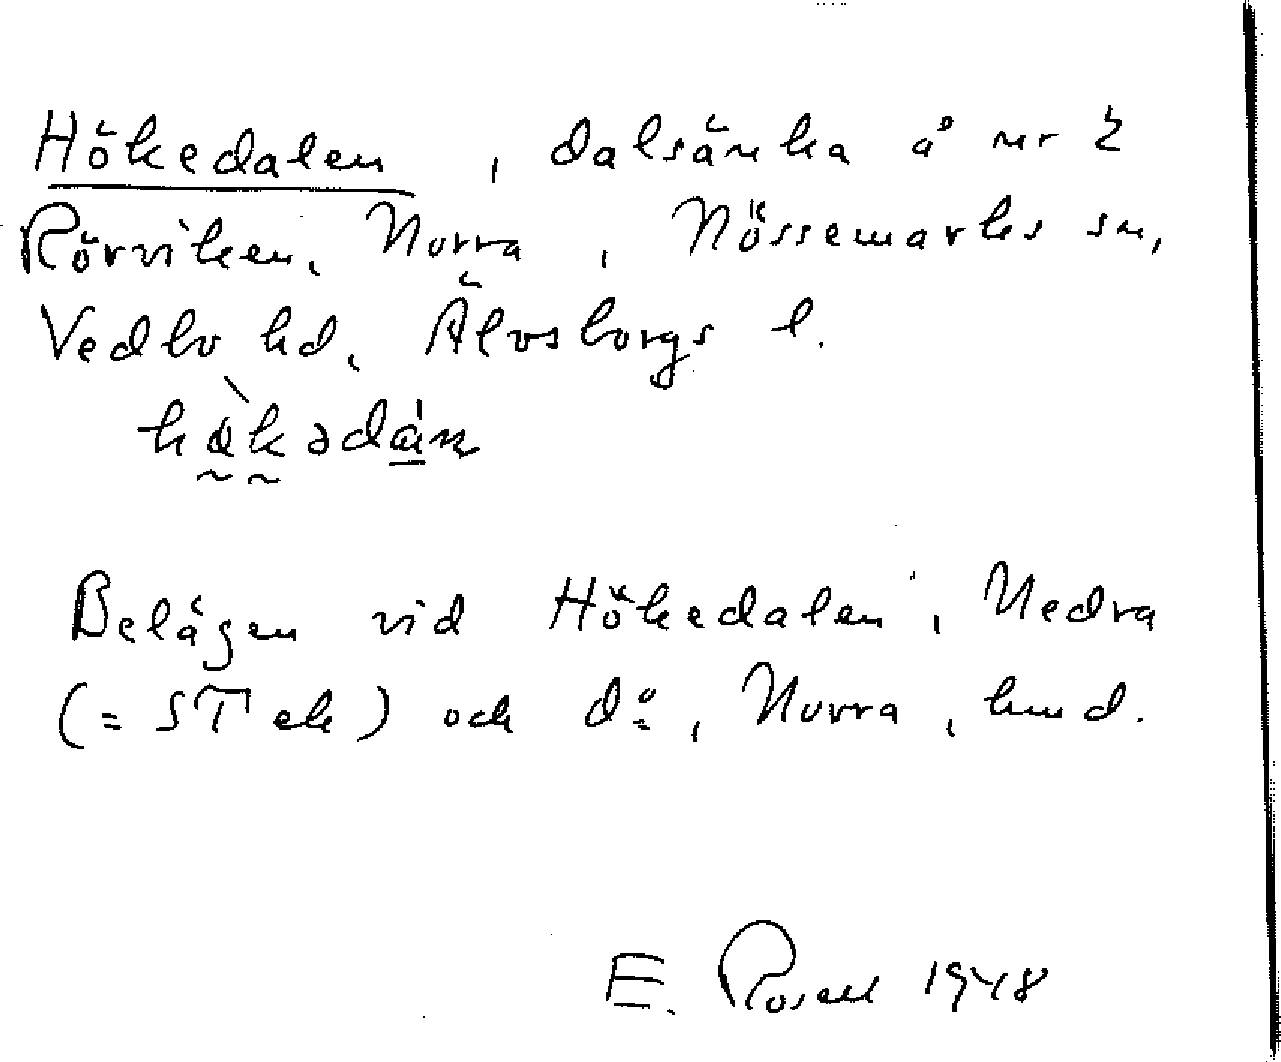 Hökedalen, dalsänka å nr 2
Rörviken, Norra, Nössemarks sn,
Vedbo hd, Älvsborgs l.
Belägen vid Hökedalen, Nedra
(= STek) och do, Norra, hmd.
E. Rosell 1948